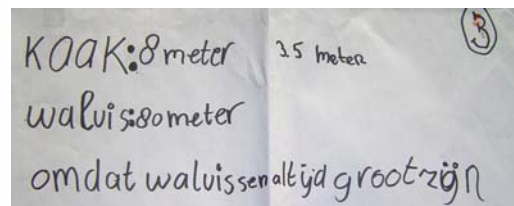 KAAK:8 meter 3.5 meter
3
walvis:80meter
omdat walvissen altijd groot zijn